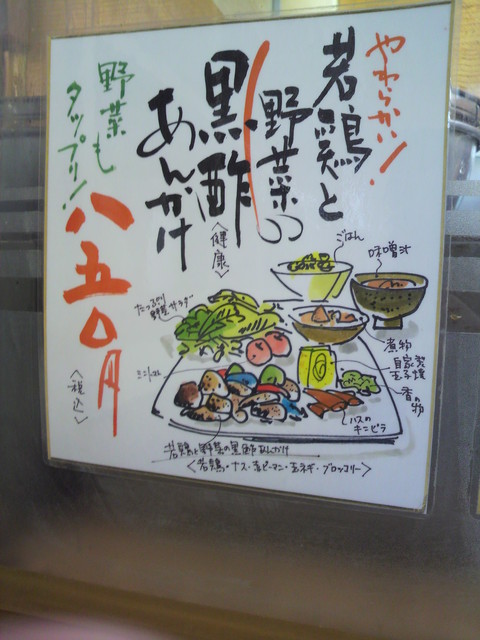 やわらかい!
若鶏と
野菜の
黒酢
あんかけ
〈健康〉
野菜も
タップリ!
八五〇円
〈税込〉
ごはん
味噌汁
たっぷり
野菜サラダ
煮物
自家製
玉子焼
香の物
ハスの
キンピラ
若鶏と野菜の黒酢あんかけ
〈若鶏・ナス・赤ピーマン・玉ネギ・ブロッコリー〉